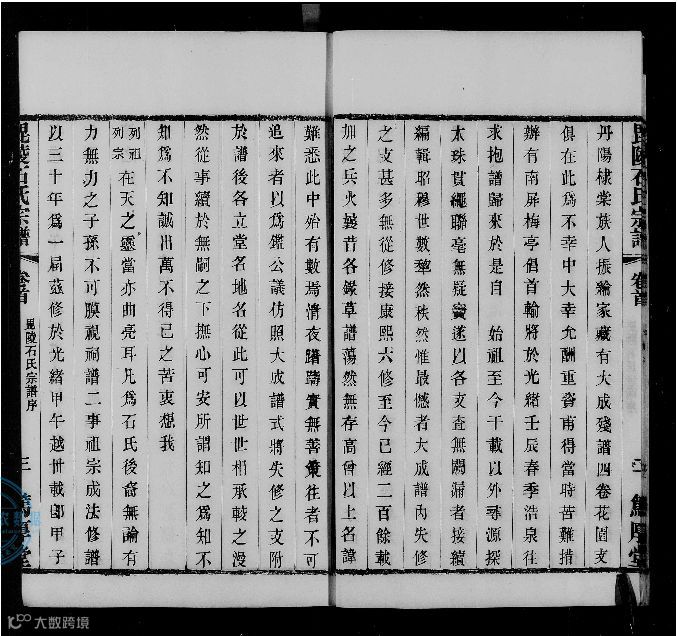 毘陵石氏宗譜 卷首 二 篤厚堂
丹陽棣棠族人振綸家藏有大成殘譜四卷花園支
俱在此爲不幸中大幸允酬重資甫得當時苦難措
辦有南屏梅亭倡首輸將於光緒壬辰春季浩泉往
求抱譜歸來於是自 始祖至今千載以外尋源探
本珠貫繩聯毫無疑竇遂以各支查無闕漏者接續
編輯昭穆世數犂然秩然惟最憾者大成譜內失修
之支甚多無從修接康熙六修至今已經二百餘載
加之兵火曩昔各錄草譜蕩然無存高曾以上名諱
難悉此中殆有數焉清夜躊躇實無善策往者不可
追來者以爲鑑公議仿照大成譜式將失修之支附
於譜後各立堂名地名從此可以世世相承較之漫
然從事續於無嗣之下撫心可安所謂知之爲知不
知爲不知誠出萬不得已之苦衷想我
列祖
列宗在天之靈當亦曲亮耳凡爲石氏後裔無論有
力無力之子孫不可膜視祠譜二事祖宗成法修譜
以三十年爲一屆茲修於光緒甲午越卅載卽甲子
毘陵石氏宗譜 卷首 毘陵石氏宗譜序 三 篤厚堂
大数跨境